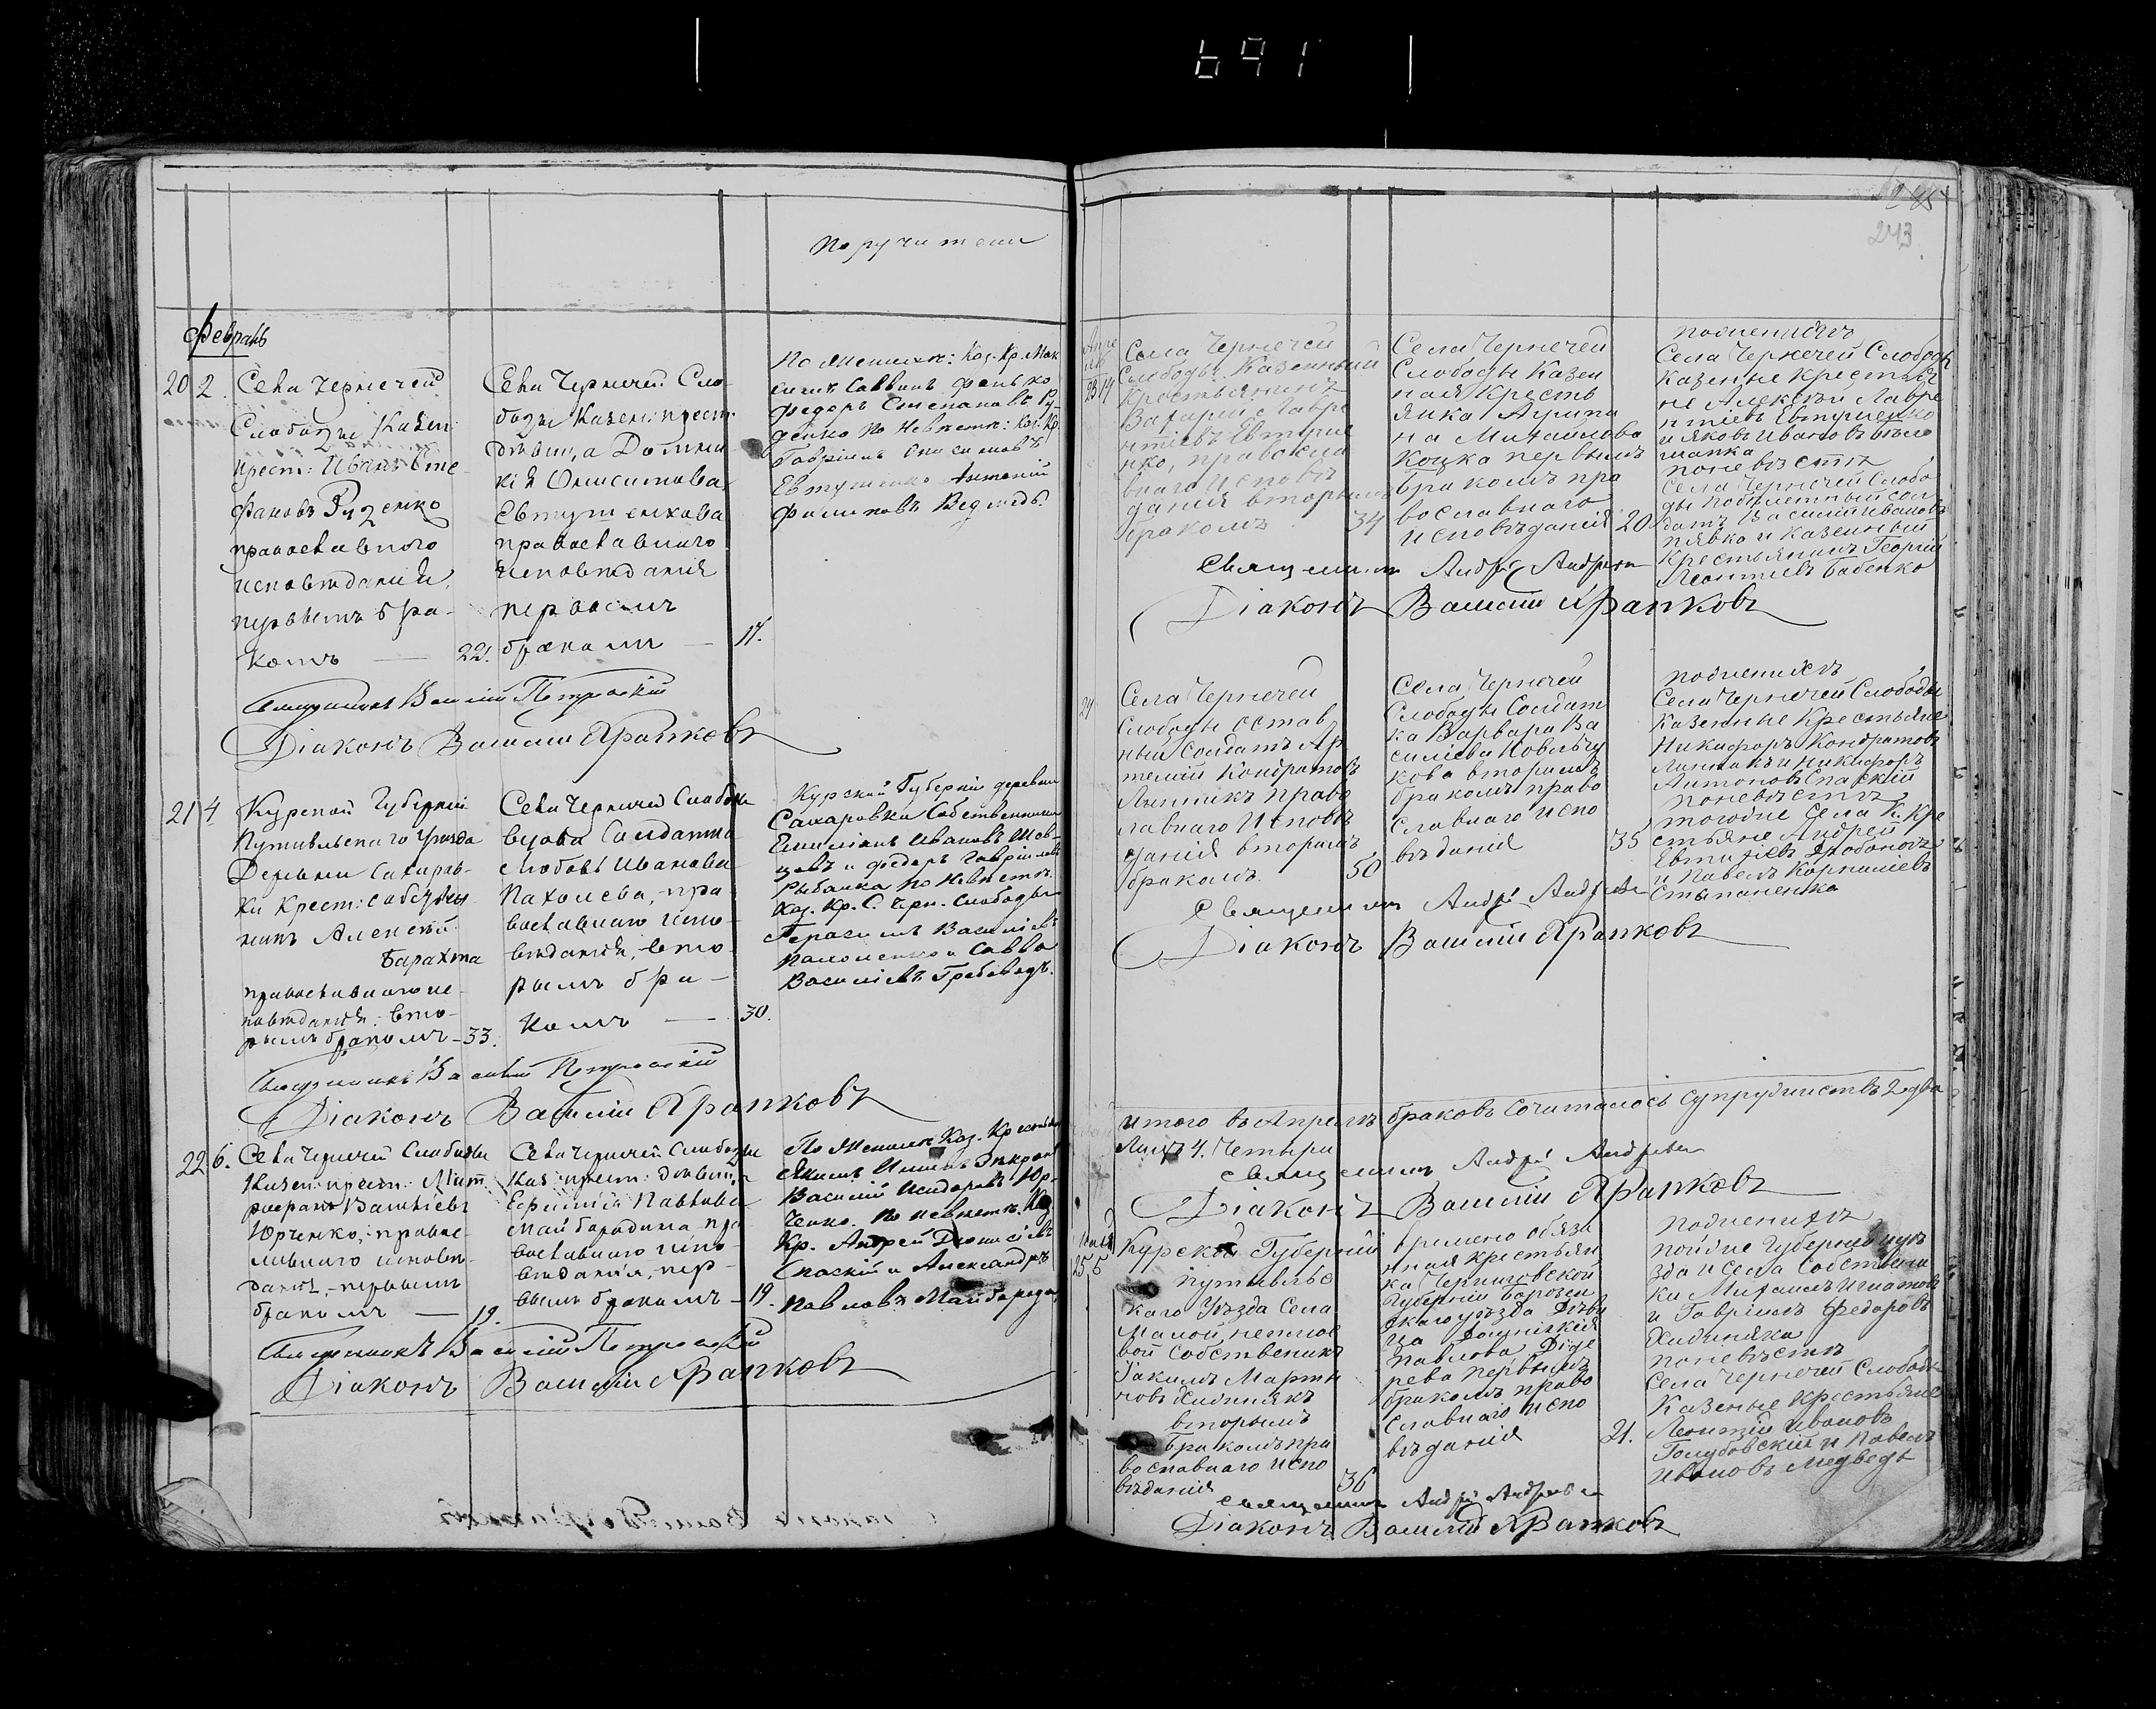 691
Поручители
Февраль
20 2.
Села Чернечей
Слободы Казен:
крест: Иванъ Сте-
фановъ Руденко
православного
исповеданія,
первымъ бра-
комъ — 22.
Села Чернечей Сло-
боды Казен: крест:
девица Домни-
кія Онисимова
Евтушенкова
православного
исповеданія
первымъ
бракомъ — 17.
По Женихе: Каз. Кр. Мак
симъ Саввинъ Фенько
Федоръ Степановъ Ру
денко По Невесте: Каз. Кр.
Гавріилъ Онисимовъ
Евтушенко Антоній
Филиповъ Ведмедь.
Священникъ Василій Петровскій
Діаконъ Василій Храпковъ
21 4
Курской Губерніи
Путивльскаго Уезда
Деревни Сахаров-
ки Крест: собствен
никъ Алексей
Барахта
православнаго ис-
поведанія: вто-
рымъ бракомъ - 33.
Села Чернечей Слободы
вдова Солдатка
Любовь Иванова
Пахолева, пра-
вославнаго испо-
веданія, вто-
рымъ бра-
комъ — 30.
Курской Губерніи деревни
Сахаровки Собственники
Емиліанъ Ивановъ Шев-
цовъ и Федоръ Гавріиловъ
Рыбалка по Невесте:
Каз. Кр. С. Черн. Слободы
Герасимъ Василіевъ
и Савва
Василіевъ Гребеводъ.
Священникъ Василій Петровскій
Діаконъ Василій Храпковъ
22 6.
Села Чернечей Слободы
Казен: крест: Мит
рофанъ Василіевъ
Юрченко, правос-
лавнаго испове-
данія, первымъ
бракомъ — 19.
Села Чернечей Слободы
Каз: крест: девица
Ефимія Павлова
Майбородина пра
вославнаго испо-
веданія, пер-
вымъ бракомъ - 19.
По Женихе Каз. Крестьяне
Якимъ
Василій Исидоровъ Юр-
ченко. По невесте. Каз
Кр. Андрей Діонисіевъ
Спаскій и Александръ
Павловъ Майборода.
Священникъ Василій Петровскій
Діаконъ Василій Храпковъ
243
Апре
ль
23 14
Села Чернечей
Слободы Казенный
Крестьянинъ
Захарій Лавре
нтіевъ Евтуше
нко, правосла
внаго Исповъ
данія вторымъ
бракомъ 34
Села Чернечей
Слободы Казен
ная Кресть
янка Агрипи
на Михайлова
Коцка первымъ
бракомъ пра
вославнаго
исповъданія 20
поженихъ
Села Чернечей Слободы
Казенные Крестья
не Алексъй Лавре
нтіевъ Евтушенко
и Яковъ Ивановъ Бъло
шапка
поневъстъ
Села Чернечей Слобо
ды
датъ Василій Ивановъ
пявка и Казенный
Крестьянинъ Георгій
Леонтіевъ Бабенко
Священникъ Андрей Андреевъ
Діаконъ Василій Храпковъ
24
Села Чернечей
Слободы Остав
ный Солдатъ Ар
темій Кондратовъ
Линникъ Право
лавнаго Исповъ
данія вторымъ
бракомъ 50
Села Чернечей
Слободы Солдат
ка Варвара Ва
силіева Ковальчу
кова вторымъ
бракомъ право
славнаго испо
въданія 35
поженихъ
Села Чернечей Слободы
Казенные Крестьяне
Никифоръ Кондратовъ
Линникъ и Никифоръ
Антоновъ Спаскій
поневъстъ
тогоже Села К. Кре
стьяне Андрей
Евтихіевъ
и Павелъ Корниліевъ
Степаненко
Священникъ Андрей Андреевъ
Діаконъ Василій Храпковъ
итого въ Апрелъ браковъ сочиталось супружиствъ 2 два
Лицъ 4. Четыри
Священникъ Андрей Андреевъ
Діаконъ Василій Храпковъ
25 5
Курской Губерніи
путивльс
каго Уъзда Села
Малой неплюе
вой Собственикъ
Іакимъ Марты
новъ Хиднякъ
вторымъ
бракомъ пра
вославнаго Испо
въданія 36
Времено обяза
нная крестьян
ка Черниговской
Губерніи Борзен
скаго уъзда Дъви
ца Домникія
Павлова
рева Первымъ
бракомъ право
славнаго испо
въданія 21.
поженихъ
тойже Губерніи уъ
зда и села Собствени
ки Михаилъ Игнатовъ
и Гавріилъ Федоровъ
Хидняка
поневъстъ
Села Чернечей Слободы
Казеные Крестьяне
Леонтій Ивановъ
Голубовскій и Павелъ
Ивановъ Медведь
Священникъ Андрей Андреевъ
Діаконъ Василій Храпковъ